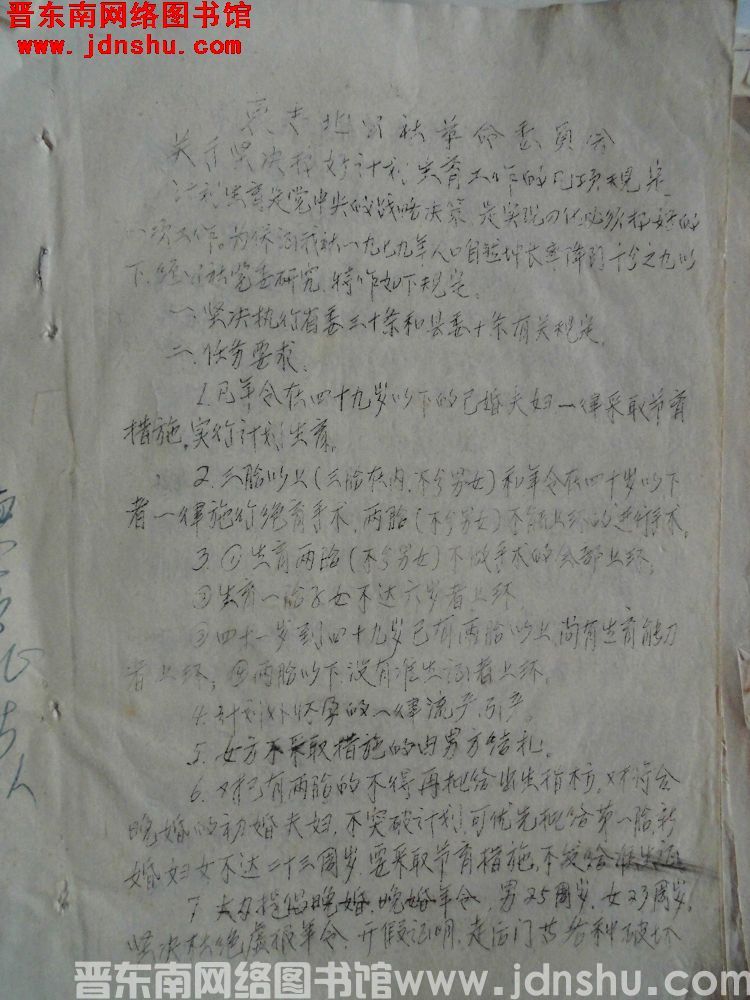 晋东南网络图书馆
www.jdnshu.com
公社革命委员会
关于坚决抓好计划生育工作的几项规定
计划生育是党中央的战略决策,是实现四化必须抓好的
一项工作。为保证我社一九七九年人口自然增长率降到千分之九以
下,经公社党委研究,特作如下规定。
一、坚决执行省委三十条和县委十条有关规定。
二、任务要求:
1.凡年令在四十九岁以下的已婚夫妇一律采取节育
措施,实行计划生育。
2.三胎以上(三胎在内,不分男女)和年令在四十岁以下
者一律施行绝育手术,两胎(不分男女)不能上环的进行手术。
3.①生育两胎(不分男女)不做手术的全部上环。
②生育一胎子女不达六岁者上环
③四十一岁到四十九岁已有两胎以上尚有生育能力
者上环;④两胎以下没有准生证者上环。
4.计划外怀孕的一律流产、引产。
5.女方不采取措施的由男方结扎。
6.对已有两胎的不得再批给出生指标,对符合
晚婚的初婚夫妇,不突破计划,可优先批给第一胎,新
婚妇女不达二十三周岁,要采取节育措施,不发给准生证
7.大力提倡晚婚,晚婚年令,男25周岁,女23周岁,
坚决杜绝虚报年令,开假证明,走后门等各种破坏
晋东南网络图书馆 www.jdnshu.com